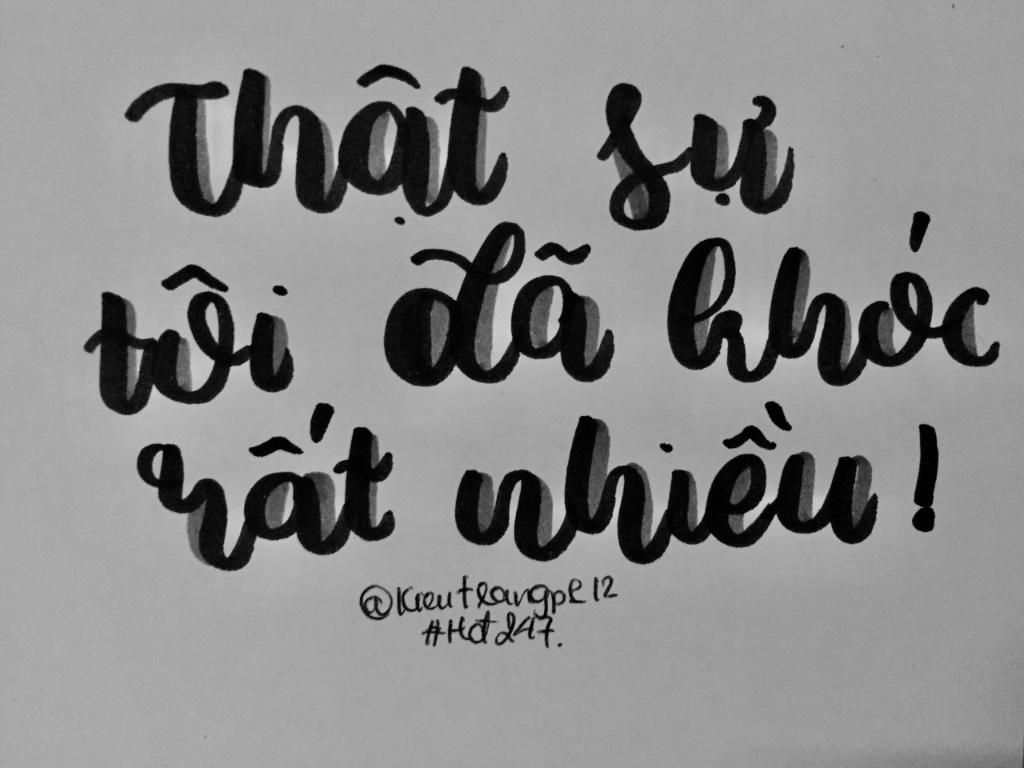 Thật sự
tôi đã khóc
rất nhiều!
@Kieutrangpk12
#Hđ247.